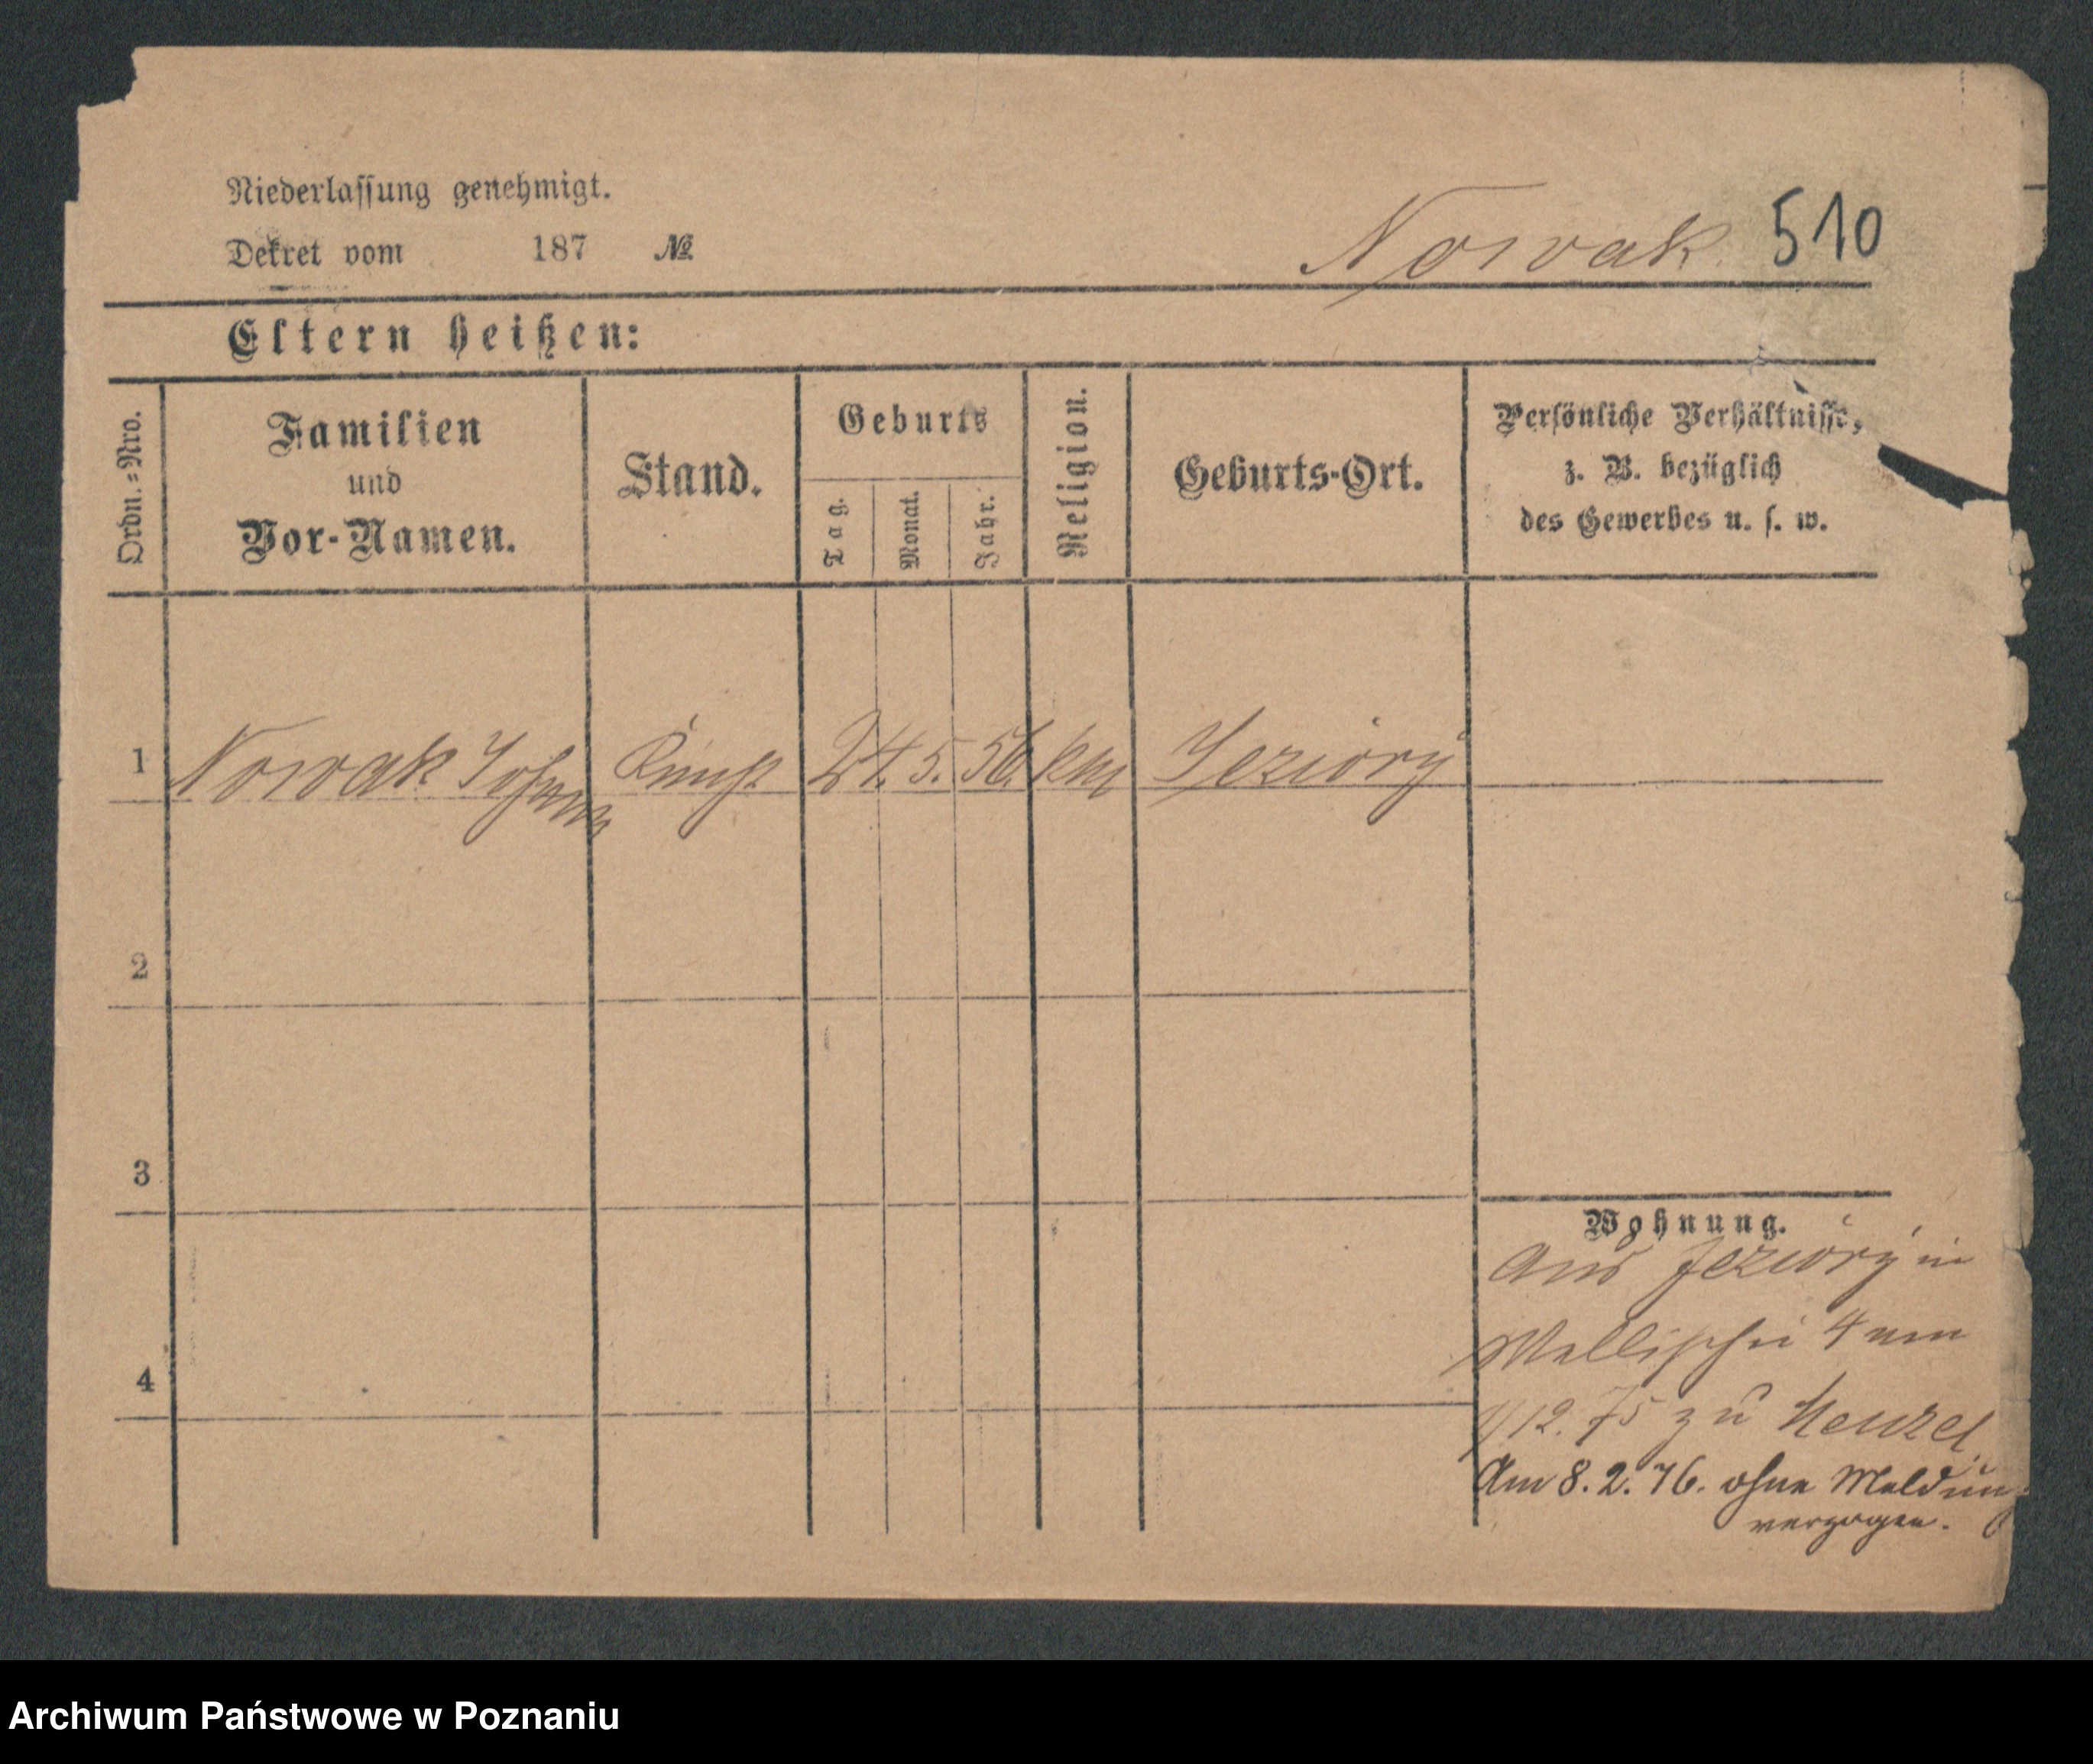 Niederlassung genehmigt.
Dekret vom 187 №
Nowak 510
Eltern heißen:
Ordn.=Nro.
Familien
und
Vor-Namen.
Stand.
Geburts
Tag.
Monat.
Jahr.
Religion.
Geburts-Ort.
Persönliche Verhältnisse,
z. B. bezüglich
des Gewerbes u. s. w.
1 Nowak Johann 24. 5. 56. Jeziory
2
3
4
Wohnung.
Aus Jeziory in
Wallischei 4 am
12. 75 zu
Am 8. 2. 76. ohne Meldung
verzogen.
Archiwum Państwowe w Poznaniu